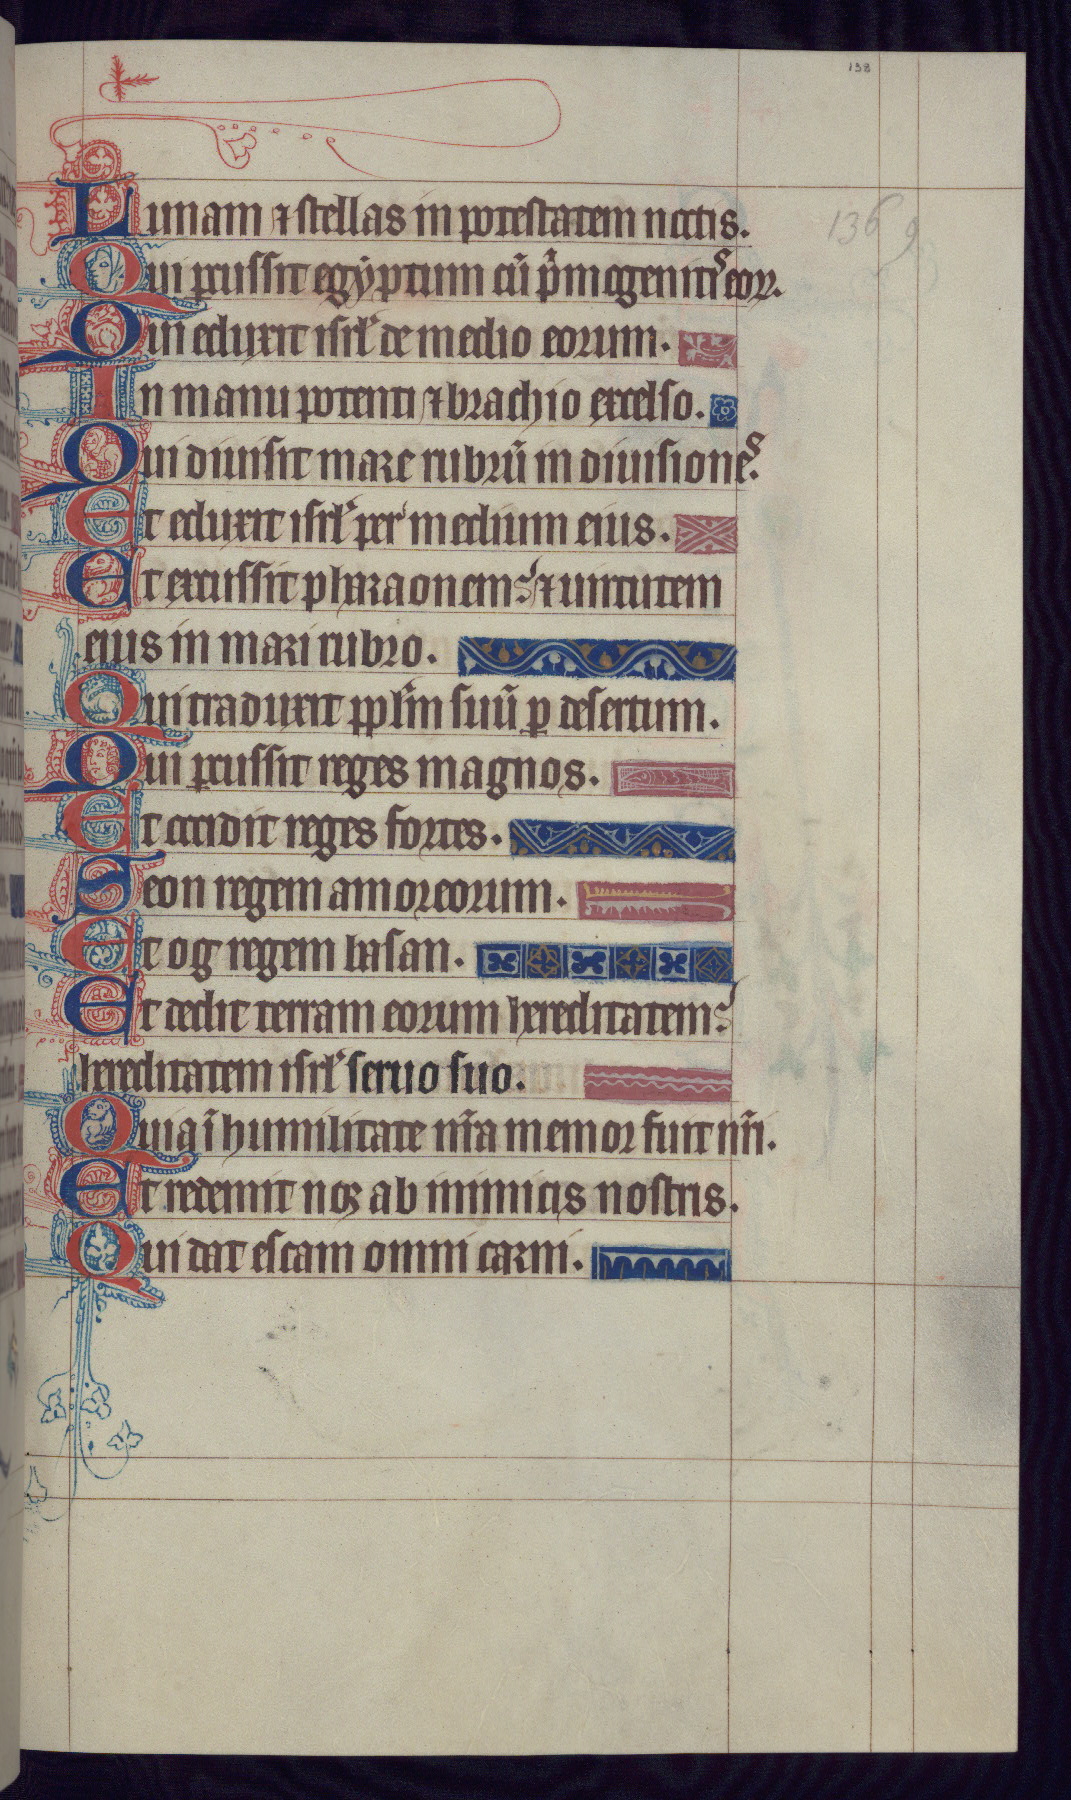 138
136 9
Lunam ⁊ stellas in potestatem noctis.
Qui ꝑcussit egẏptum cū p̄mogenitis eoꝝ.
Qui eduxit isrl̕ de medio eorum.
In manu potenti ⁊ brachio excelso.
Qui diuisit mare rubrū in diuisiones.
Et eduxit isrl̕ per medium eius.
Et excussit pharaonem: ⁊ uirtutem
eius in mari rubro.
Qui traduxit ppl̄m suū ꝑ desertum.
Qui ꝑcussit reges magnos.
Et occidit reges fortes.
Seon regem amoreorum.
Et og regem basan.
Et dedit terram eorum hereditatem:
hereditatem isrl̕ seruo suo.
Quia ī humilitate nr̄a memor fuit nr̄i.
Et redemit nos ab inimicis nostris.
Qui dat escam omni carni.